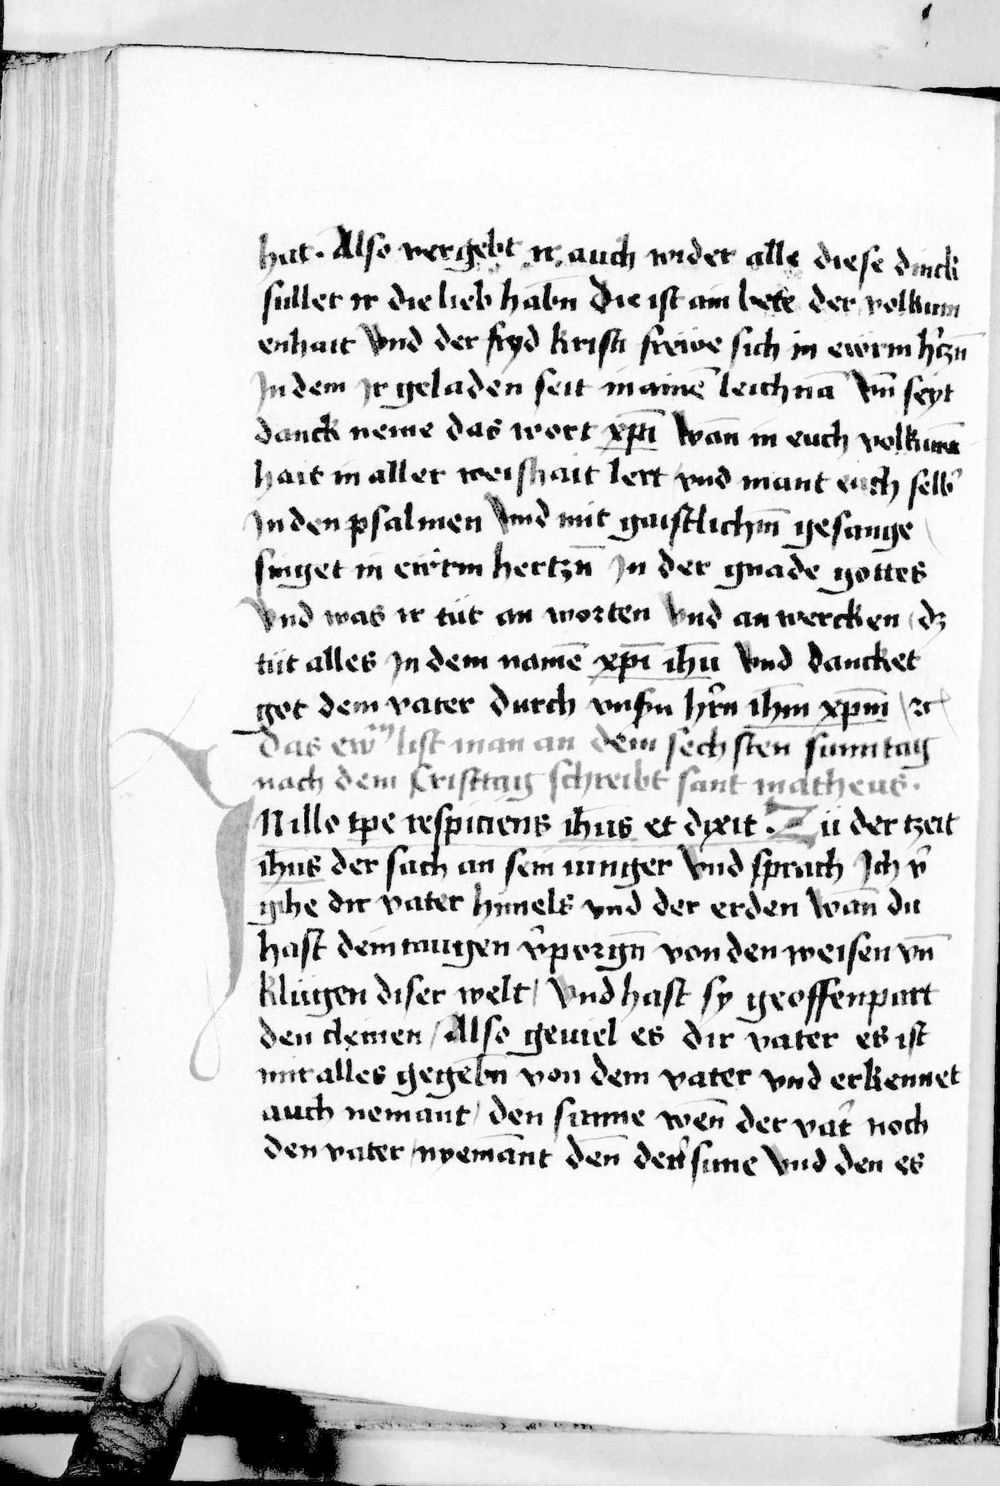 hat . Also vergebt ir auch wider alle diese dinck
süllet ir die lieb habn̄ Die ist ain bete der volkum
enhait Vnd der fryd kristi freẅe sich in ewrm h̄czn̄
In dem Ir geladen seit in ainē leichnā Vn̄ seyt
danck neme das wort xp̄i Wan in euch volkum̄
hait in aller weishait lert / vnd mant euch selb̾
In den psalmen Vnd mit gaistlichm̄ gesange
singet in ewrm hertzn̄ In der gnade gottes
Vnd was ir tüt an worten Vnd an wercken / dz
tüt alles In dem namē xp̄i ih̄u Vnd dancket
got dem vater durch vnsm hr̄n ih̄m xp̄m / ꝛc
Das ew̄m list man an dem sechsten sunntag
nach dem Cristtag schreibt sant matheus .
IN illo tp̄e respiciens ih̄us et dixit . Zü der tzeit
ih̄us der sach an sein iunger Vnd sprach Ich v̾
gihe dir vater himels vnd der erden Wan̄ du
hast dein taugen v̾porgn̄ von den weisen vn̄
klügen diser welt / Vnd hast sy geoffenpart
den cleinen / Also geuiel es dir vater es ist
mir alles gegebn̄ von dem vater vnd erkennet
auch nemant / den sunne wen̄ der vat̾ noch
den vater / nyemānt den̄ der sune Vnd den es